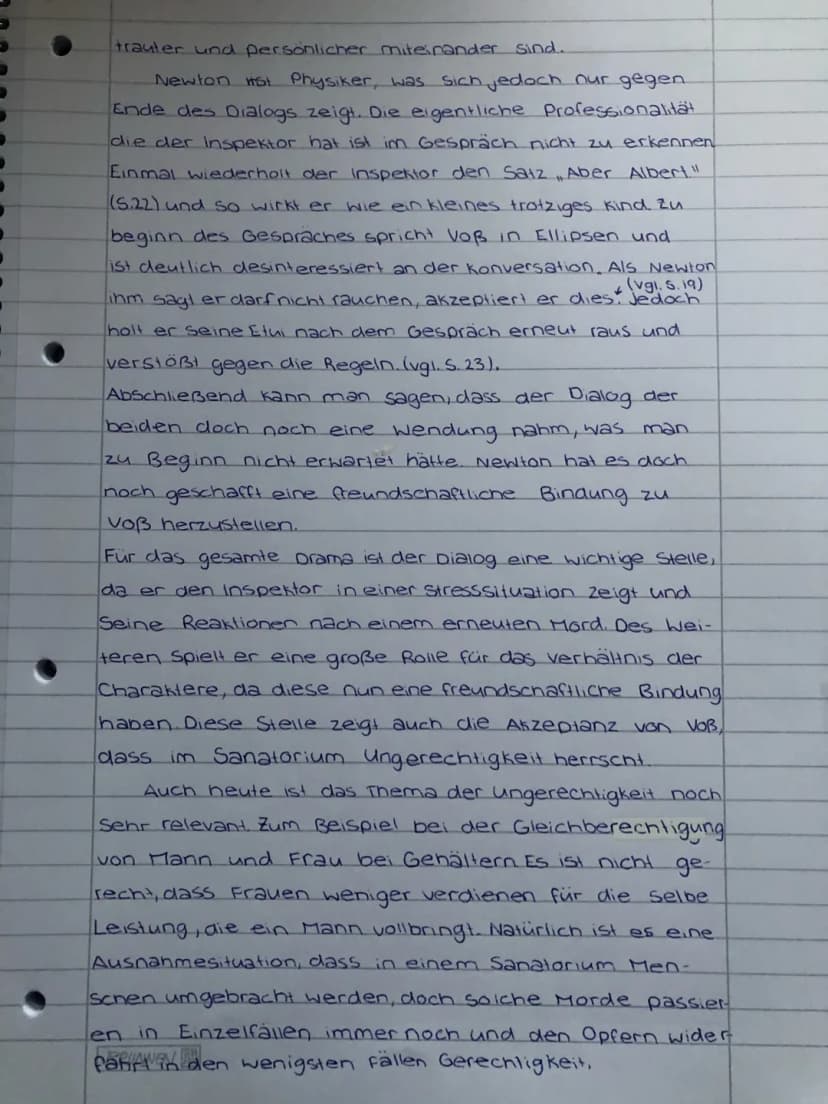 trauter und persönlicher miteinander sind.
Newton ist Physiker, was sich jedoch nur gegen
Ende des Dialogs zeigt. Die eigentliche Professionalität
die der Inspektor hat ist im Gespräch nicht zu erkennen
Einmal wiederholt der Inspektor den Satz „Aber Albert"
(S.22) und so wirkt er wie ein kleines trotziges Kind. Zu
beginn des Gespräches spricht Voß in Ellipsen und
ist deutlich desinteressiert an der Konversation. Als Newton
(vgl. S. 19)
ihm sagt er darf nicht rauchen, akzeptiert er dies. Jedoch
holt er seine Etui nach dem Gespräch erneut raus und
verstößt gegen die Regeln. (vgl. S. 23).
Abschließend kann man sagen, dass der Dialog der
beiden doch noch eine Wendung nahm, was man
zu Beginn nicht erwartet hätte. Newton hat es doch
noch geschafft eine freundschaftliche Bindung zu
Voß herzustellen.
Für das gesamte Drama ist der Dialog eine wichtige Stelle,
da er den Inspektor in einer Stresssituation zeigt und
seine Reaktionen nach einem erneuten Mord. Des Wei-
teren spielt er eine große Rolle für das Verhältnis der
Charaktere, da diese nun eine freundschaftliche Bindung
haben. Diese Stelle zeigt auch die Akzeptanz von Voß,
dass im Sanatorium Ungerechtigkeit herrscht.
Auch heute ist das Thema der Ungerechtigkeit noch
sehr relevant. Zum Beispiel bei der Gleichberechtigung
von Mann und Frau bei Gehältern. Es ist nicht ge-
recht, dass Frauen weniger verdienen für die selbe
Leistung, die ein Mann vollbringt. Natürlich ist es eine
Ausnahmesituation, dass in einem Sanatorium Men-
schen umgebracht werden, doch solche Morde passier-
en in Einzelfällen immer noch und den Opfern wider-
fährt in den wenigsten Fällen Gerechtigkeit.